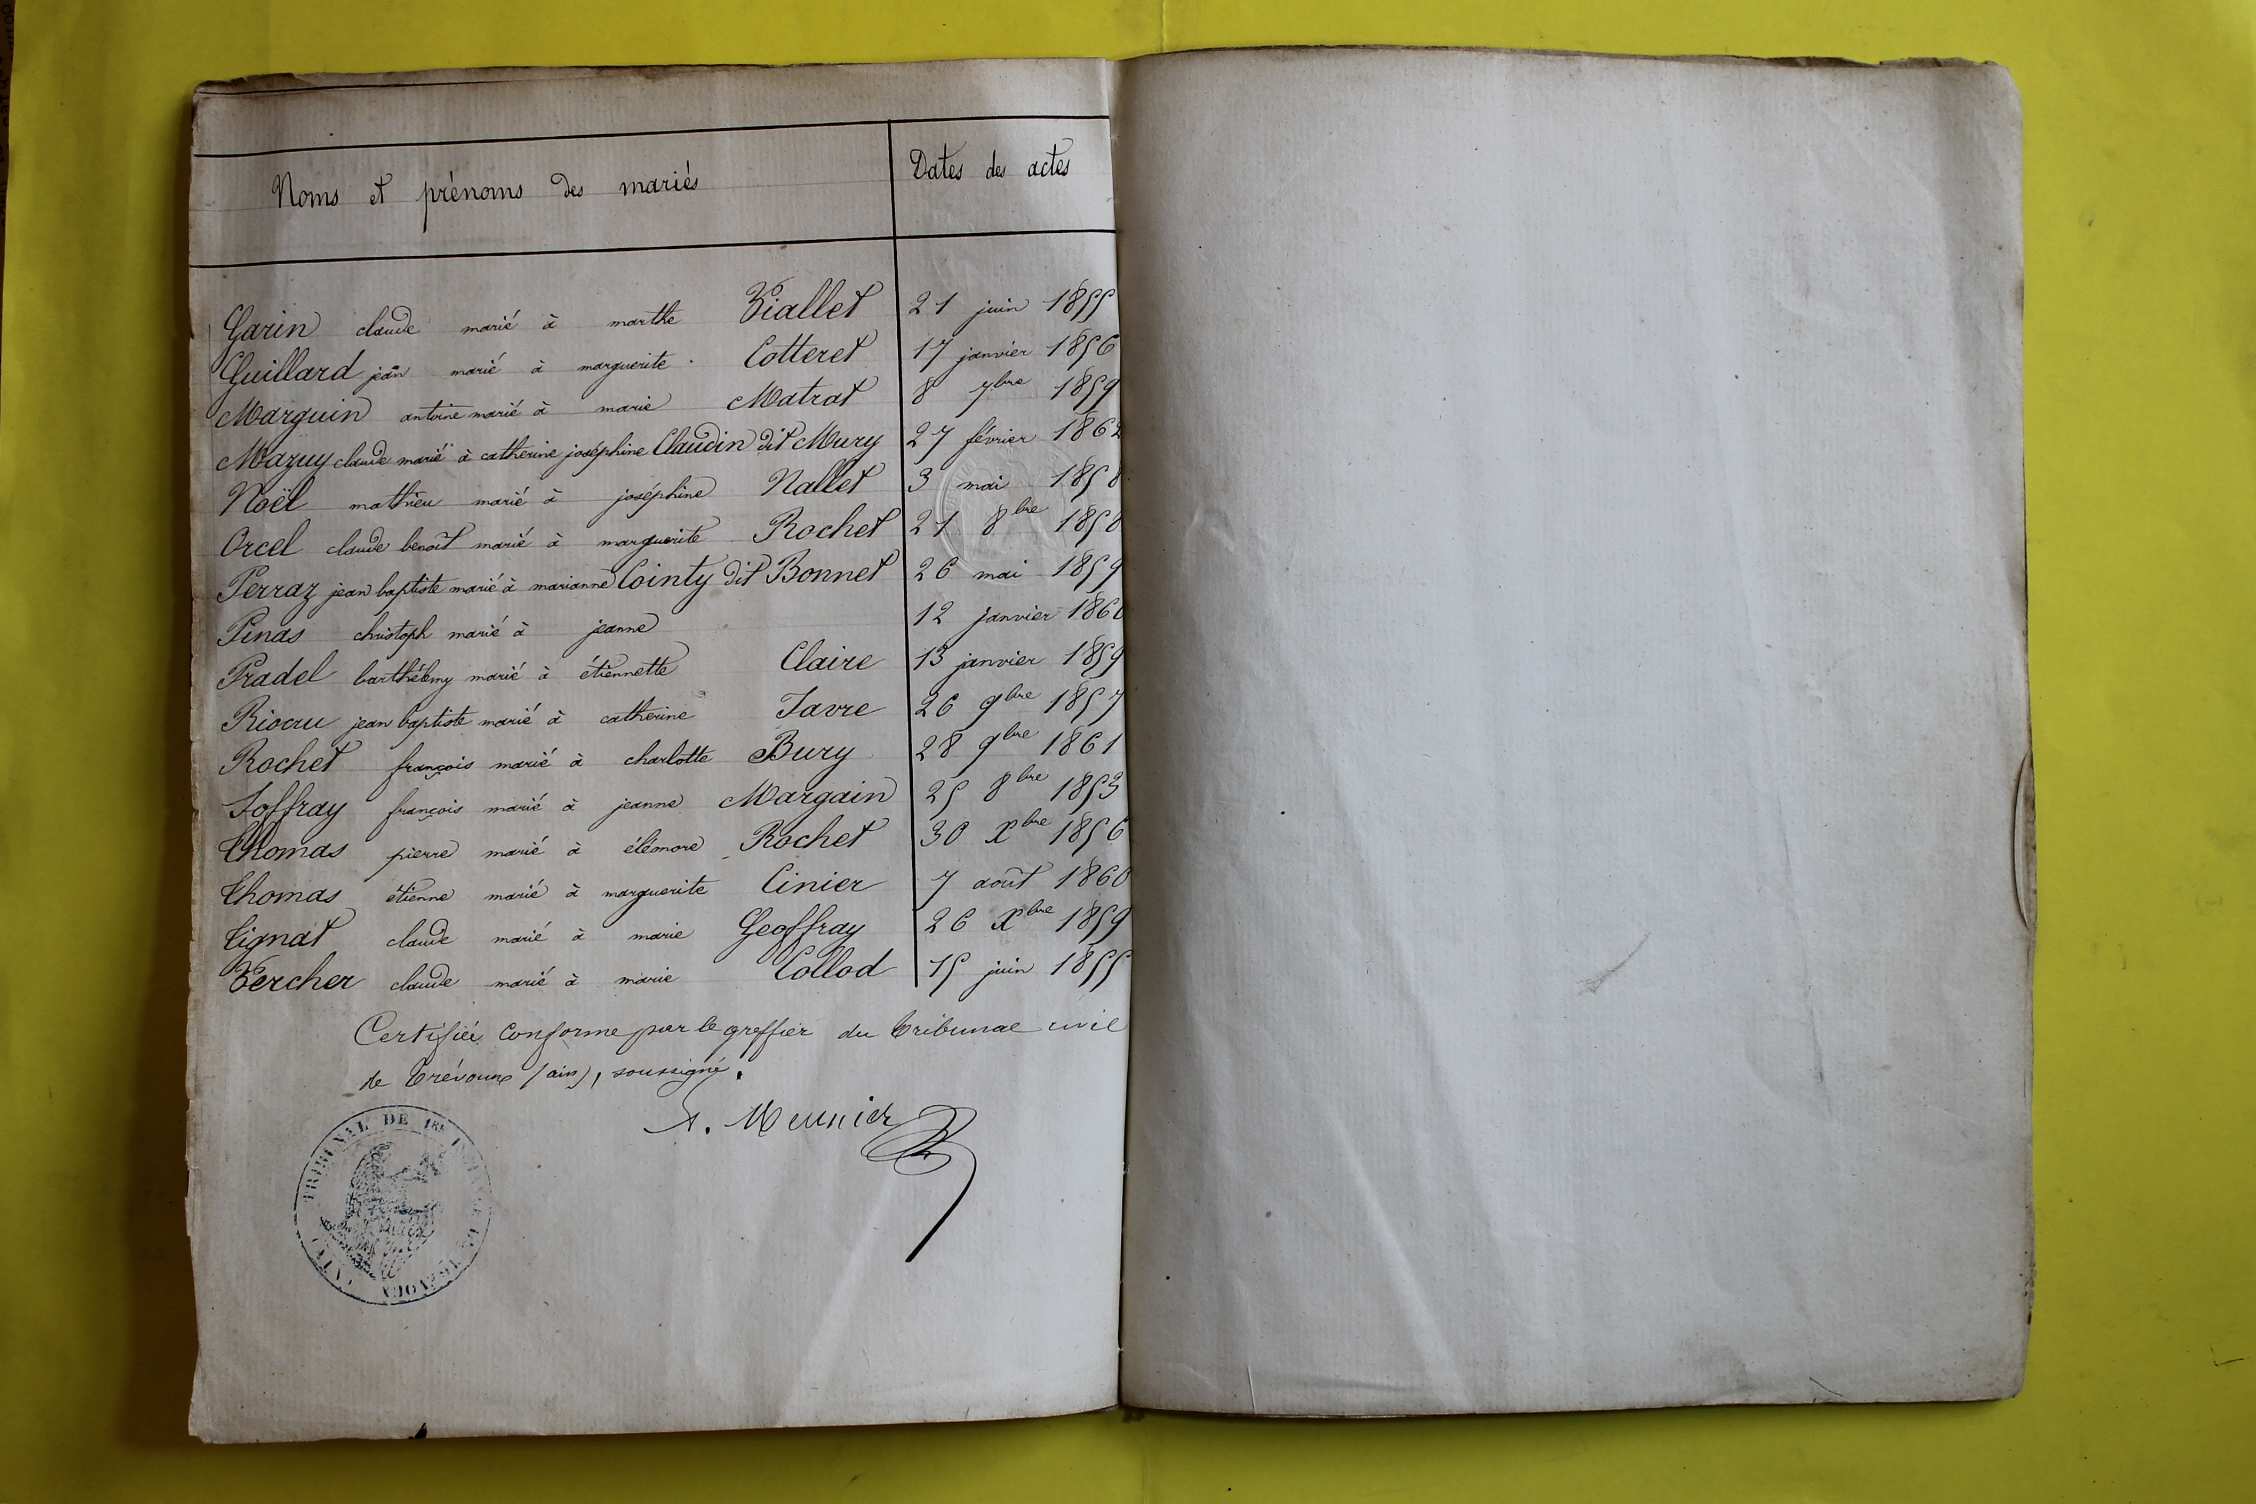 Noms et prénoms des mariés Dates des actes
Garin claude marié à marthe Viallet 21 juin 1855
Guillard jean marié à marguerite Cotteret 17 janvier 1856
Marguin antoine marié à marie Matrat 8 7bre 1859
Mazuy claude marié à catherine joséphine Claudin dit Mury 27 février 1862
Noël mathieu marié à joséphine Nallet 3 mai 1858
Orcel claude benoît marié à marguerite Rochet 21 8bre 1858
Perraz jean baptiste marié à marianne Cointy dit Bonnet 26 mai 1859
Pinas christoph marié à jeanne 12 janvier 1860
Pradel barthélemy marié à étiennette Claire 13 janvier 1859
Riocru jean baptiste marié à catherine Favre 26 9bre 1857
Rochet françois marié à charlotte Bury 28 9bre 1861
Joffray françois marié à jeanne Margain 25 8bre 1853
Thomas pierre marié à éléonore Rochet 30 Xbre 1856
Thomas étienne marié à marguerite Cinier 7 août 1860
Tignat claude marié à marie Geoffray 26 Xbre 1859
Vercher claude marié à marie Collod 15 juin 1855
Certifiée conforme par le greffier du tribunal civil
de trévoux (ain), soussigné.
A. Meunier
TRIBUNAL DE 1RE INSTANCE DE TRÉVOUX (AIN)